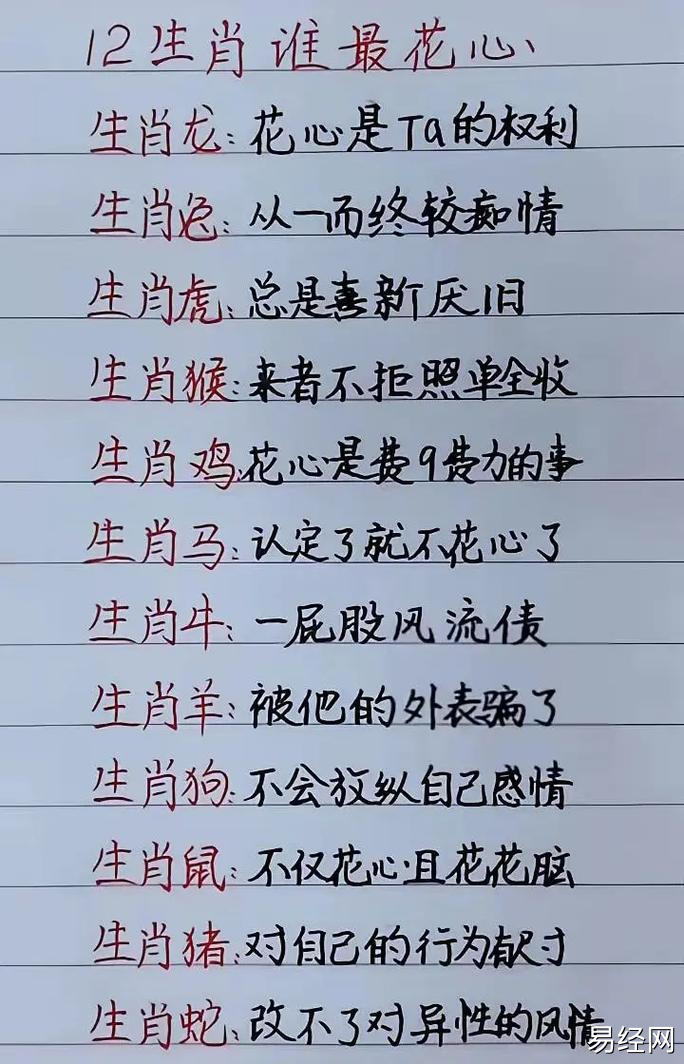 12生肖谁最花心
生肖龙:花心是Ta的权利
生肖兔:从一而终较痴情
生肖虎:总是喜新厌旧
生肖猴:来者不拒照单全收
生肖鸡:花心是费9费力的事
生肖马:认定了就不花心了
生肖牛:一屁股风流债
生肖羊:被他的外表骗了
生肖狗:不会放纵自己感情
生肖鼠:不仅花心且花花脑
生肖猪:对自己的行为有尺寸
生肖蛇:改不了对异性的风情
易经网